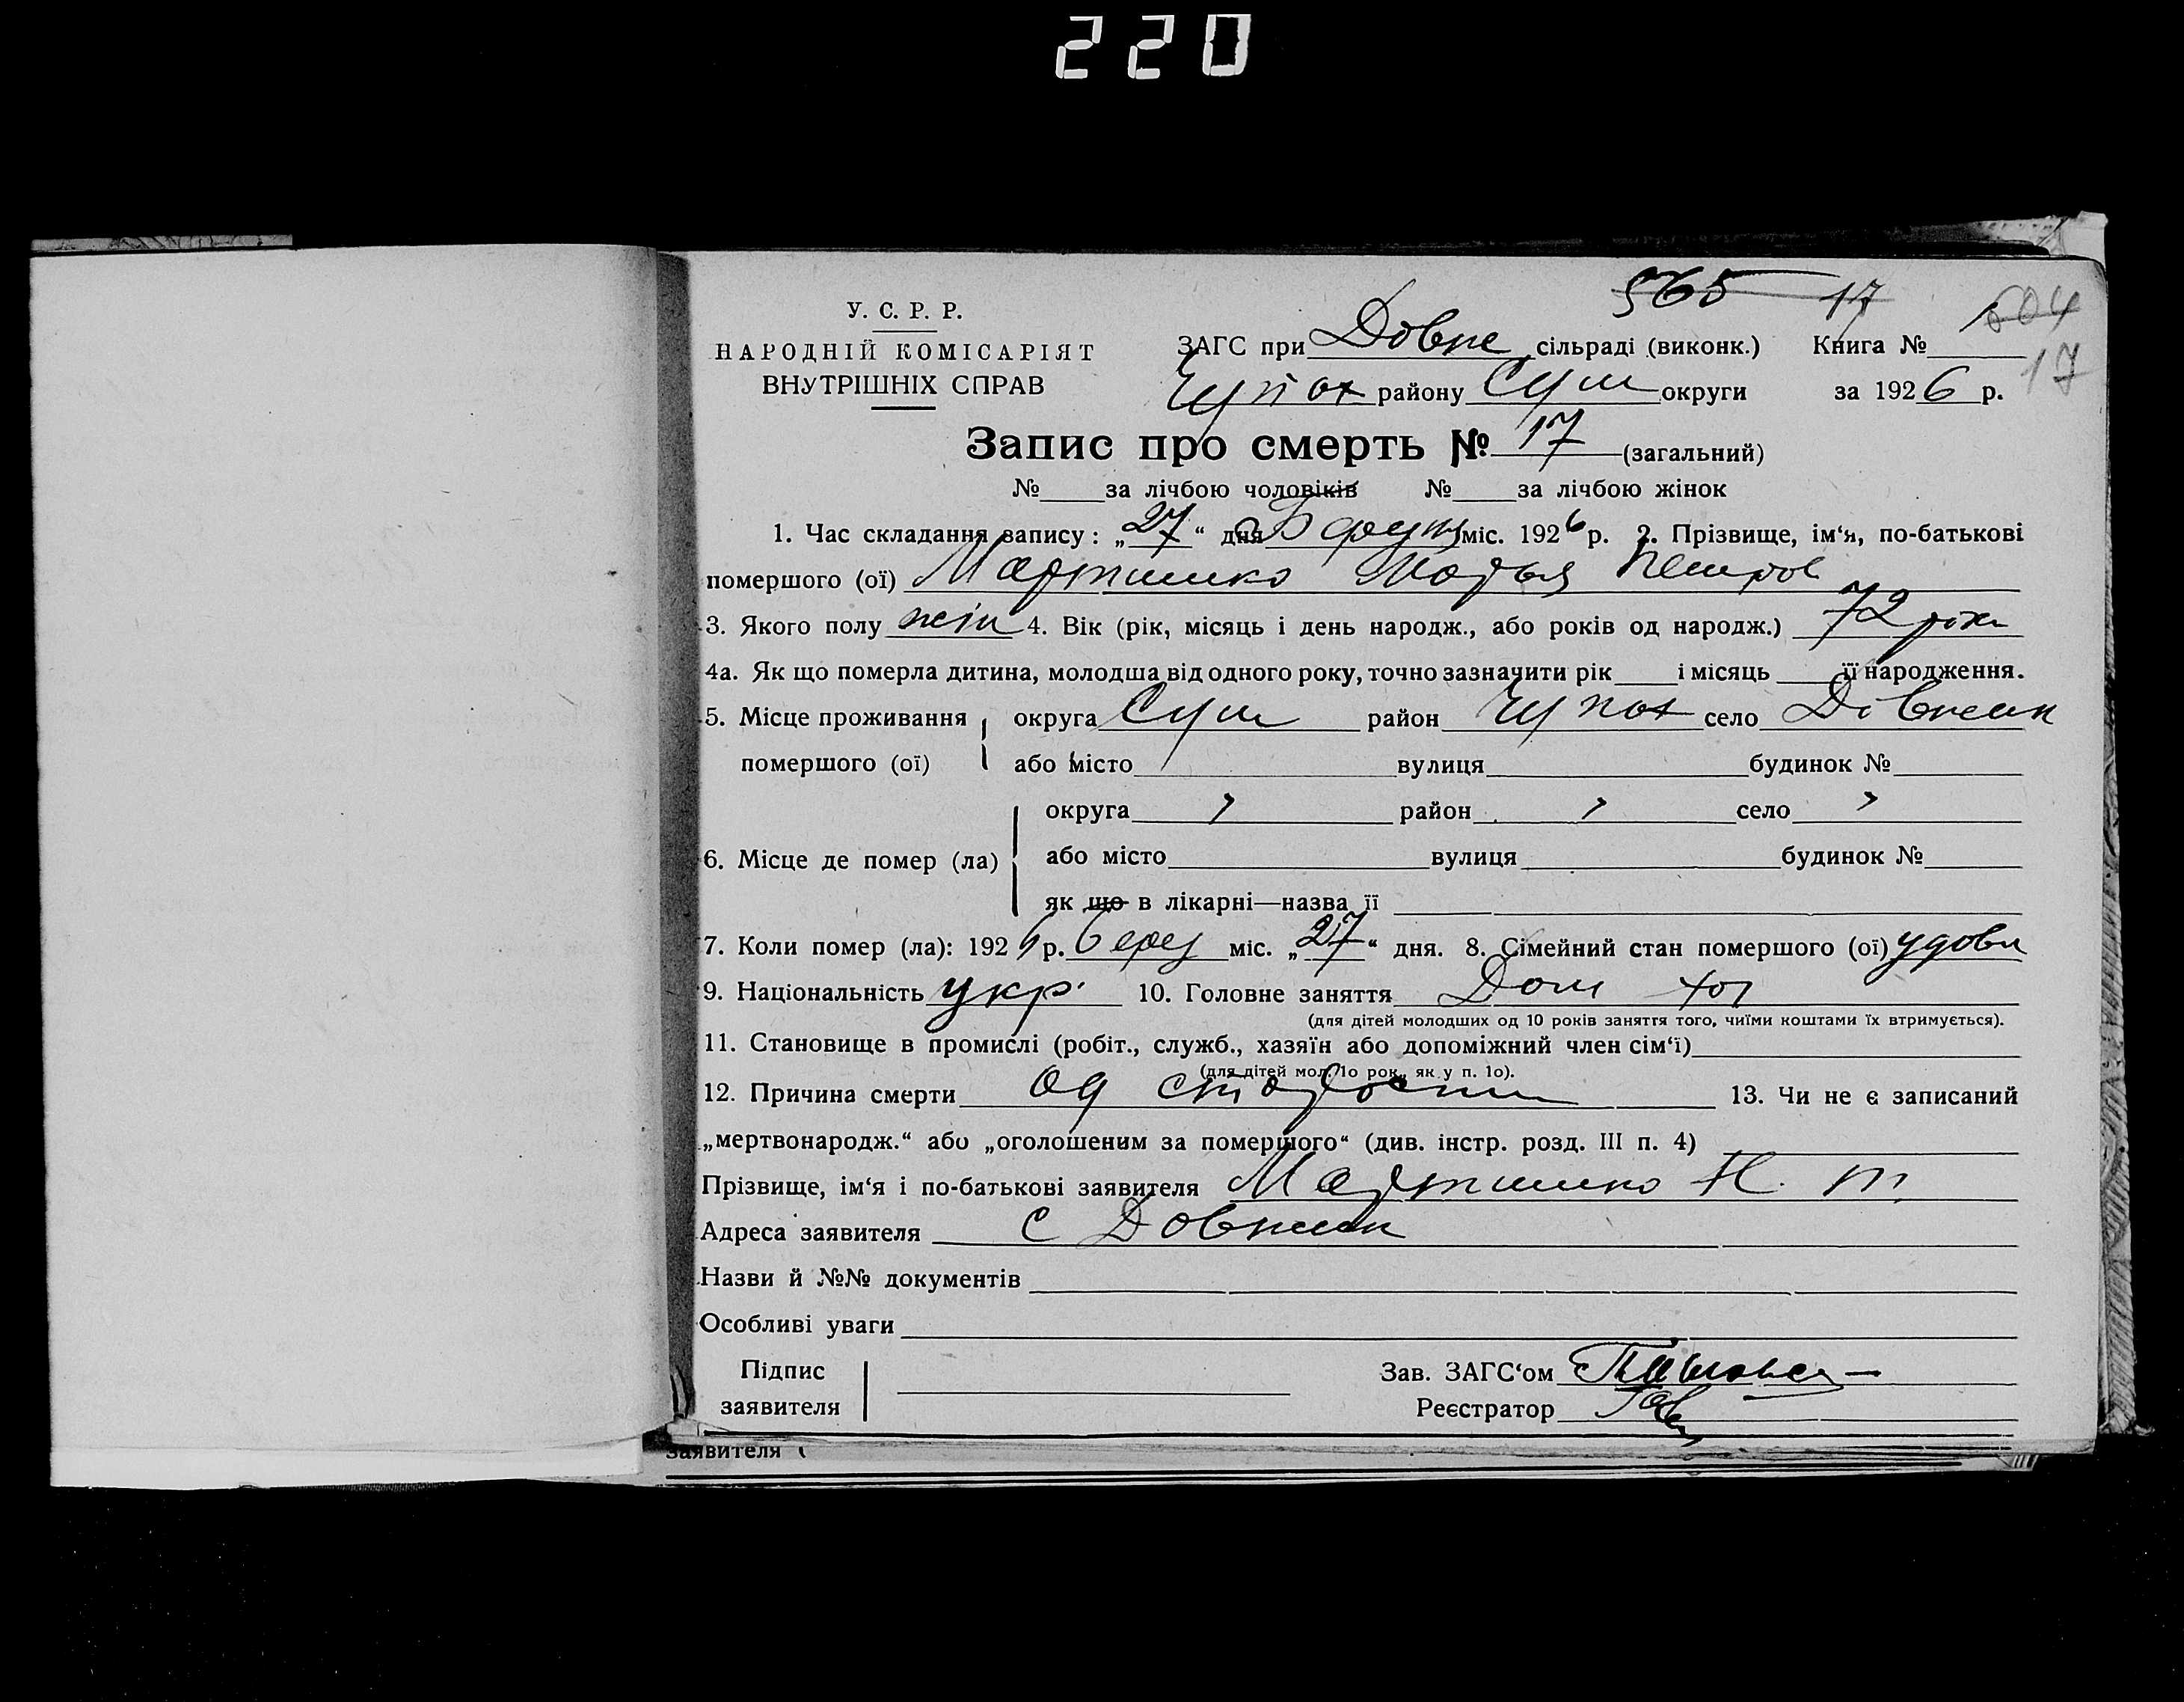 220
565 17 604
У. С. Р. Р.
НАРОДНІЙ КОМІСАРІЯТ
ВНУТРІШНІХ СПРАВ
ЗАГС при Довже сільраді (виконк.) Книга № 1
17
Чупах району Сум округи за 1926 р.
Запис про смерть № 17 (загальний)
№ за лічбою чоловіків № за лічбою жінок
1. Час складання запису: „27“ дня міс. 1926 р. 2. Прізвище, ім‘я, по-батькові
помершого (ої) Мартишко Марья Петров
3. Якого полу жін 4. Вік (рік, місяць і день народж., або років од народж.) 72 роки
4а. Як що померла дитина, молодша від одного року, точно зазначити рік і місяць її народження.
5. Місце проживання округа Сум район Чупах село Довжик
помершого (ої) або місто вулиця будинок №
округа район село
6. Місце де помер (ла) або місто вулиця будинок №
як що в лікарні—назва її
7. Коли помер (ла): 1926 р. берез міс. „27“ дня. 8. Сімейний стан помершого (ої) удова
9. Національність укр. 10. Головне заняття Дом хоз
(для дітей молодших од 10 років заняття того, чиїми коштами їх втримується).
11. Становище в промислі (робіт., служб., хазяїн або допоміжний член сім‘ї)
(для дітей мол. 10 рок., як у п. 10).
12. Причина смерти од старости 13. Чи не є записаний
„мертвонародж.“ або „оголошеним за помершого“ (див. інстр. розд. III п. 4)
Прізвище, ім‘я і по-батькові заявителя Мартишко Н. т
Адреса заявителя с Довжик
Назви й №№ документів
Особливі уваги
Підпис Зав. ЗАГС‘ом
заявителя Реєстратор
заявителя